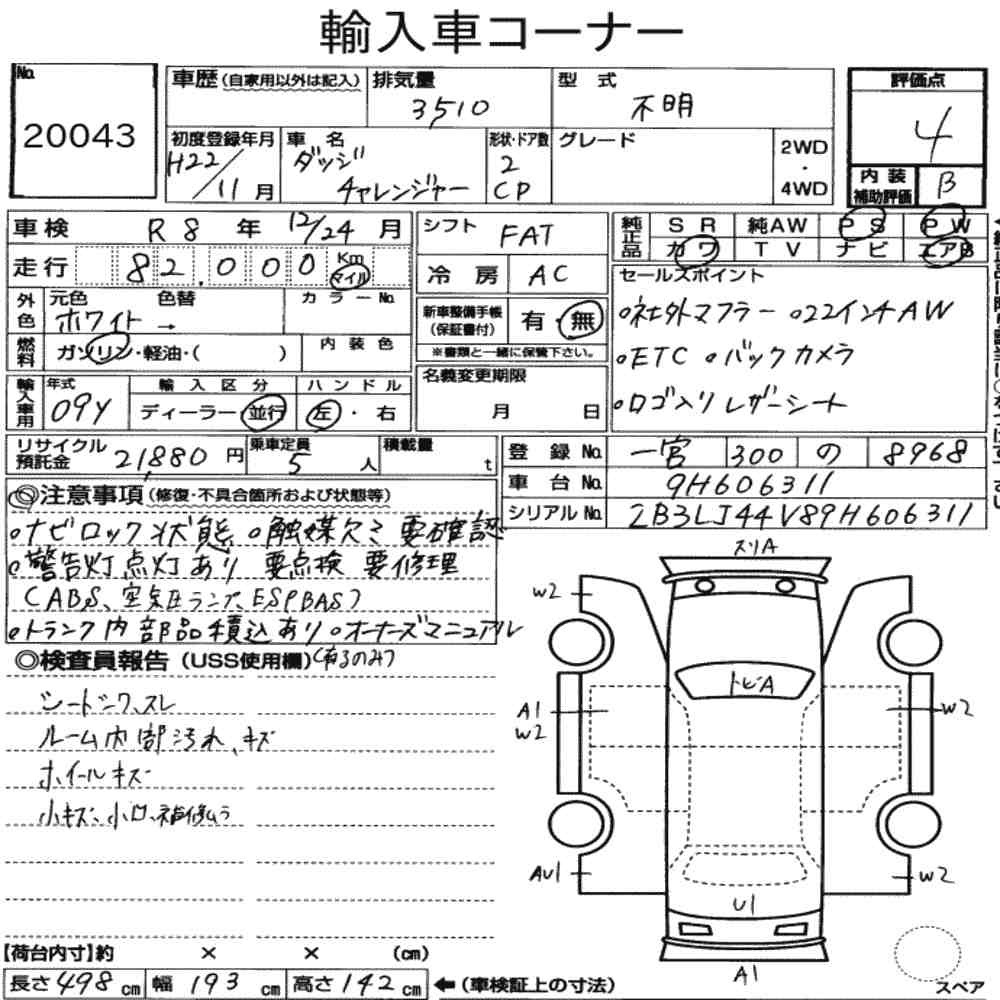 輸入車コーナー
No.
20043
車歴 (自家用以外は記入)
排気量
3,510
型式
不明
評価点
4
初度登録年月
H22/11月
車名
ダッジ
チャレンジャー
形状・ドア数
2
CP
グレード
2WD
・
4WD
内装
補助評価
B
車検 R8年 12/24月
シフト FAT
純正品
SR 純AW PS PW
カワ TV ナビ エアB
走行 82,000 Km マイル
冷房 AC
セールスポイント
○社外マフラー ○22インチAW
○ETC ○バックカメラ
○ロゴ入りレザーシート
外色
元色 色替 カラーNo.
ホワイト →
新車整備手帳
(保証書付)
有・無
※書類と一緒に保管下さい。
燃料
ガソリン・軽油・( )
内装色
名義変更期限
月 日
輸入車用
年式
09y
輸入区分
ディーラー・並行
ハンドル
左・右
リサイクル
預託金 21,880円
乗車定員
5人
積載量
t
登録No. 一宮 300 の 8968
車台No. 9H606311
シリアルNo. 2B3LJ44V89H606311
◎注意事項 (修復・不具合箇所および状態等)
○ナビロック状態 ○触媒欠ミ 要確認
○警告灯点灯あり 要点検 要修理
(ABS、空気圧ランプ、ESPBAS)
○トランク内部品積込あり ○オーナーズマニュアル
(有るのみ)
◎検査員報告 (USS使用欄)
シートシワ、スレ
ルーム内部汚れ、キズ
ホイールキズ
小キズ、小凹、補修ムラ
スリA
W2
トビA
A1
W2
W2
AU1
W2
U1
A1
スペア
【荷台内寸】約 × × (cm)
長さ498cm 幅193cm 高さ142cm ←(車検証上の寸法)